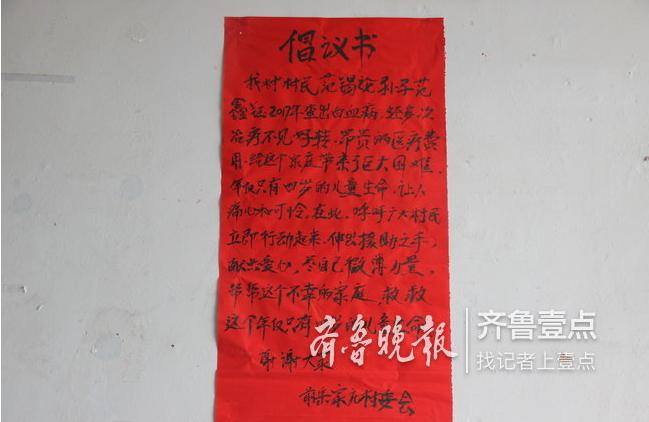 倡议书
我村村民范锡论孙子范
鑫 2017年查出白血病,经多次
治疗不见好转,昂贵的医疗费
用,给这个家庭带来了巨大困难,
年仅只有四岁的儿童生命,让人
痛心和可怜,在此,呼吁广大村民
立即行动起来,伸出援助之手,
献出爱心,尽自己微薄力量,
帮帮这个不幸的家庭,救救
这个年仅只有 岁的儿童生命
谢谢大家
前 家 村委会
齐鲁晚报
齐鲁壹点
找记者上壹点